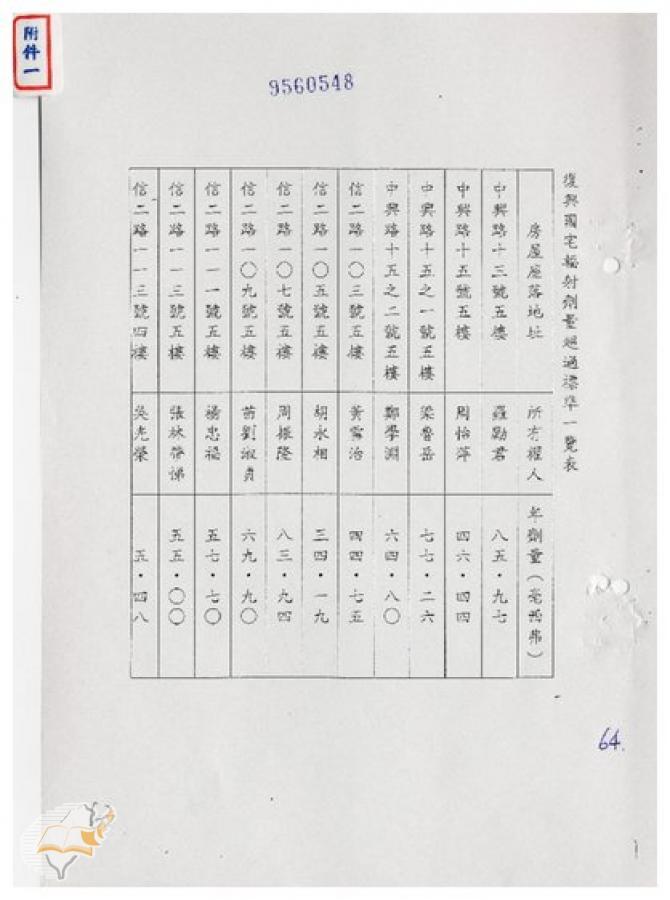 附件一
9560548
復興國宅輻射劑量超過標準一覽表
房屋座落地址 所有權人 年劑量(毫西弗)
中興路十三號五樓 羅勵君 八五·九七
中興路十五號五樓 周怡萍 四六·四四
中興路十五之一號五樓 梁魯岳 七七·二六
中興路十五之二號五樓 鄭學淵 六四·八〇
信二路一〇三號五樓 黃雪治 四四·七五
信二路一〇五號五樓 胡永相 三四·一九
信二路一〇七號五樓 周振隆 八三·九四
信二路一〇九號五樓 苗劉淑貞 六九·九〇
信二路一一一號五樓 楊忠福 五七·七〇
信二路一一三號五樓 張林 五五·〇〇
信二路一一三號四樓 吳光榮 五·四八
64.